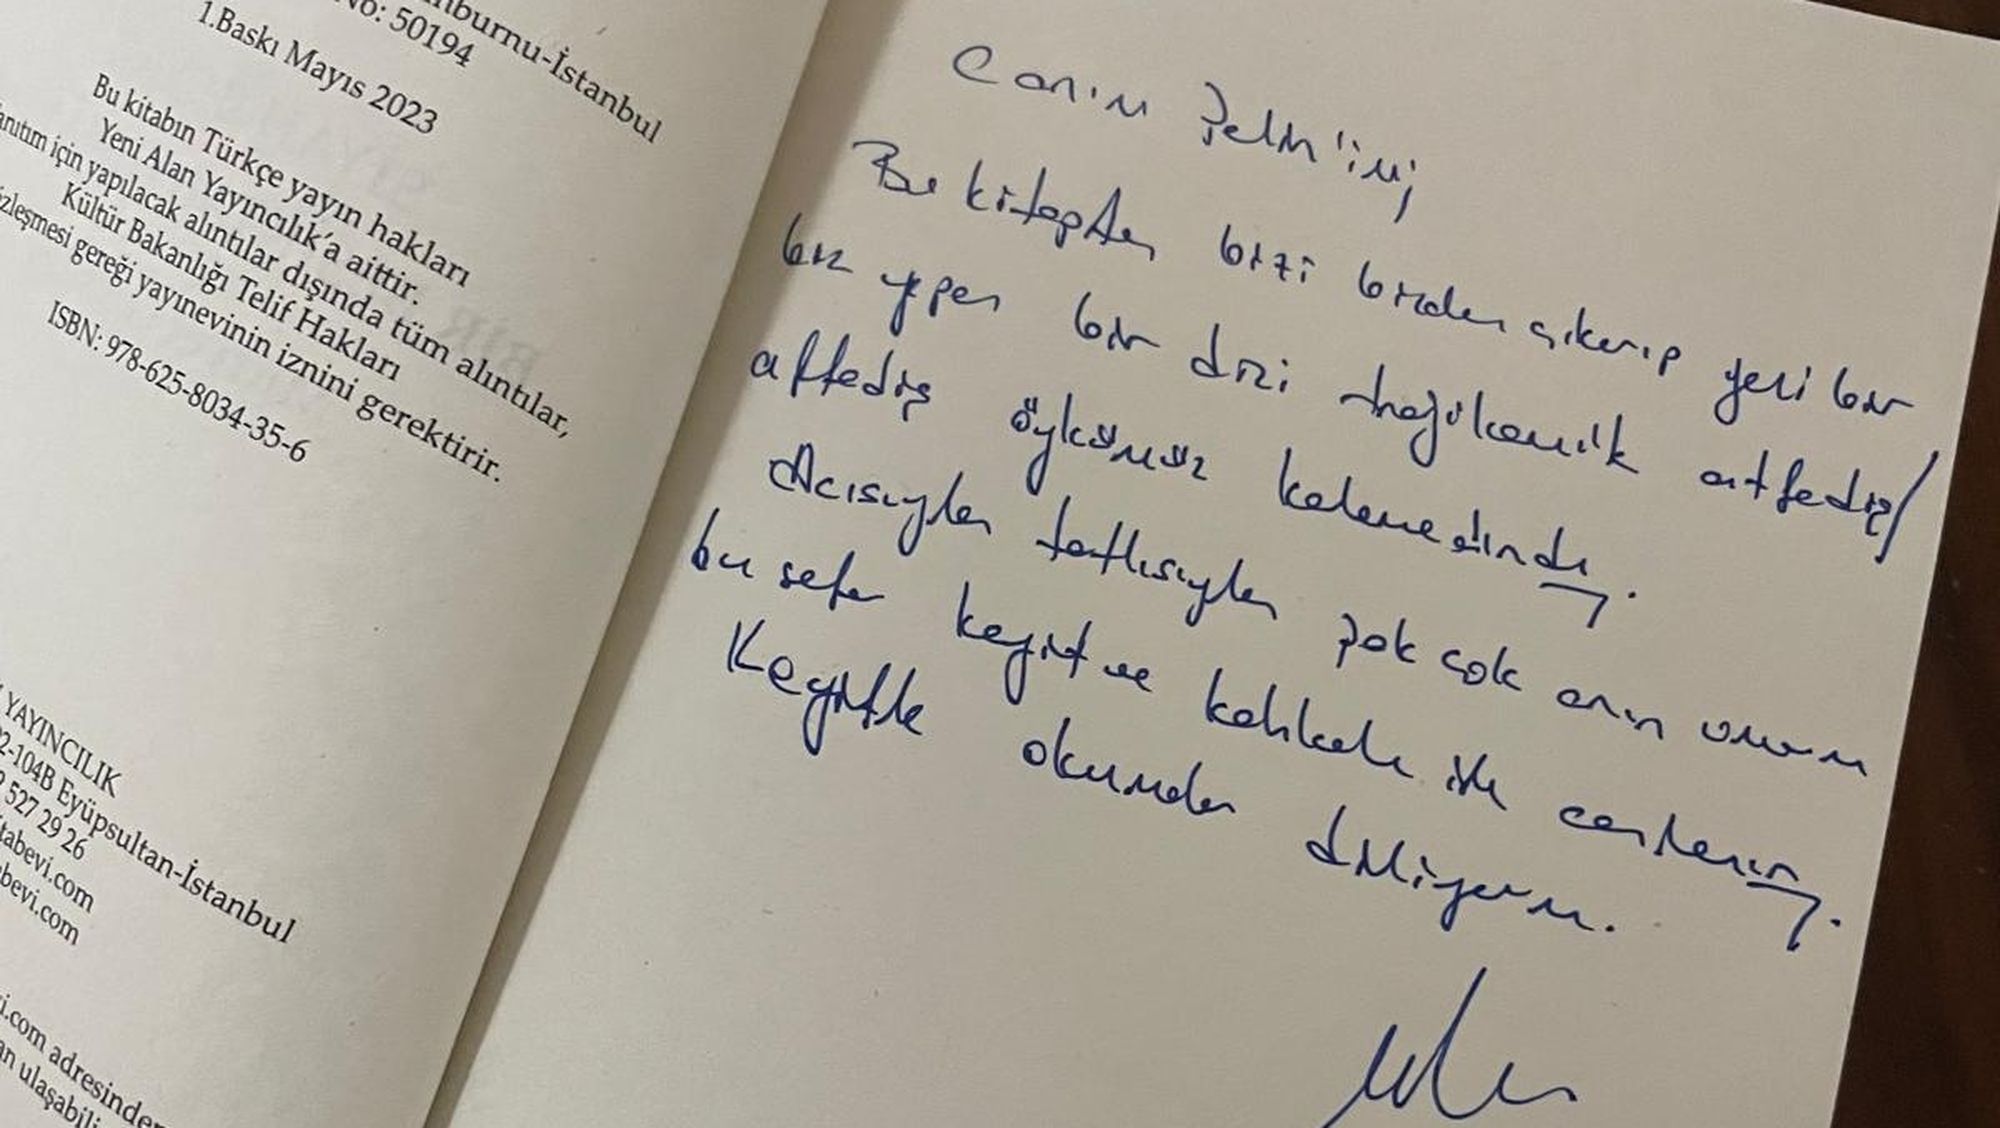 nburnu-İstanbul
No: 50194
1.Baskı Mayıs 2023
Bu kitabın Türkçe yayın hakları
Yeni Alan Yayıncılık'a aittir.
anıtım için yapılacak alıntılar dışında tüm alıntılar,
Kültür Bakanlığı Telif Hakları
özleşmesi gereği yayınevinin iznini gerektirir.
ISBN: 978-625-8034-35-6
YAYINCILIK
2-104B Eyüpsultan-İstanbul
527 29 26
tabevi.com
bevi.com
i.com adresinden
an ulaşabili
Canım
Bu kitapta bizi bizden çıkarıp yeni bir
biz yapan bir dizi affediş/
affediş öykümüz kaleme alındı.
Acısıyla tatlısıyla pek çok anın umarım
bu sefer keyif ve kahkaha ile canlanır.
Keyifle okumanı diliyorum.